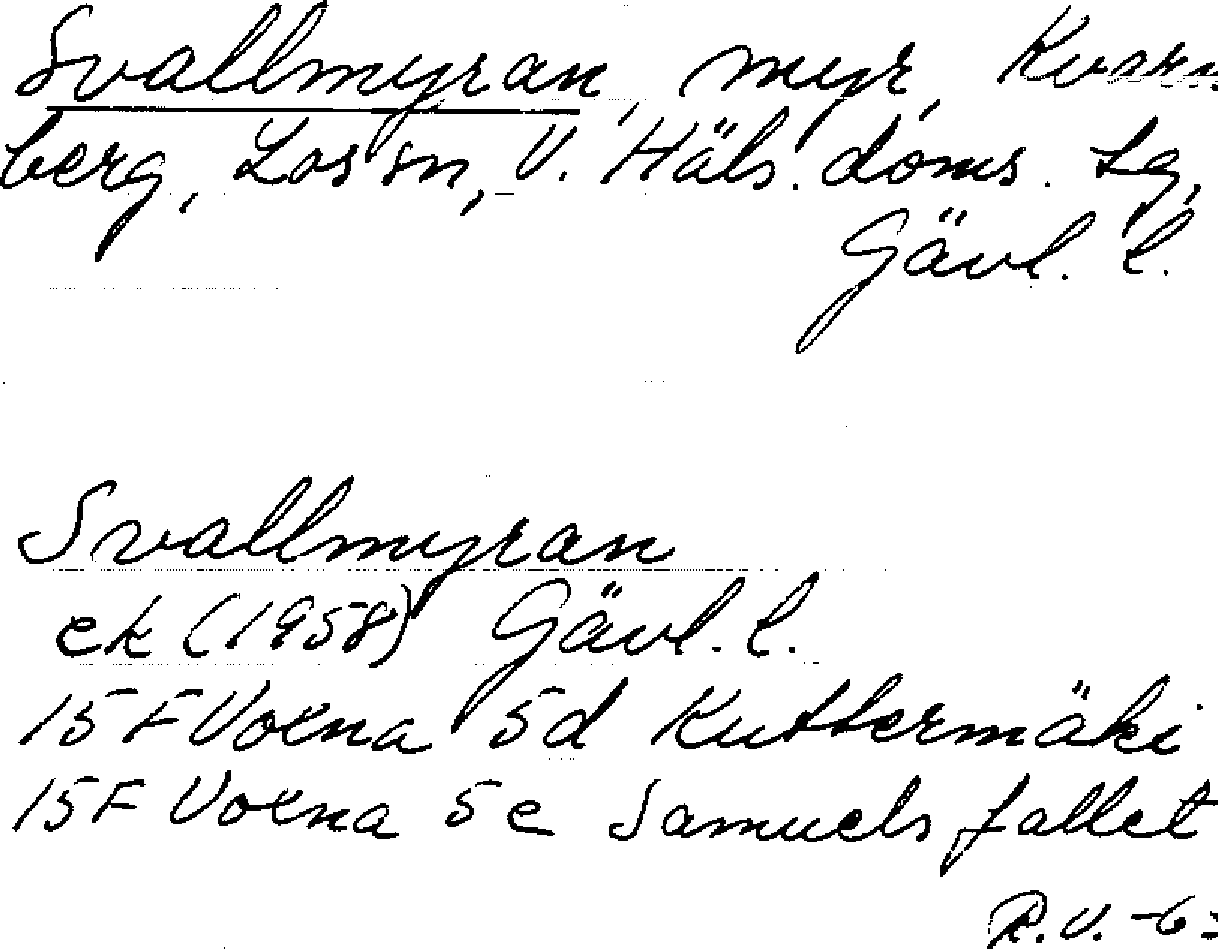 Svallmyran, myr, Kvarn
berg, Los sn, V. Häls. doms. Lg,
Gävl. l.
Svallmyran
ek (1958) Gävl. l.
15 F Voxna 5d Kuttermäki
15 F Voxna 5e Samuelsfallet
R.V. -6